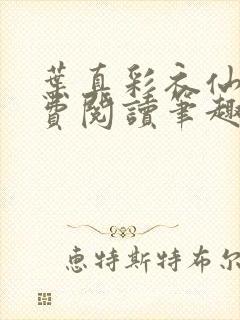 葉真彩衣仙
費閱讀筆趣
惠特斯特布尔